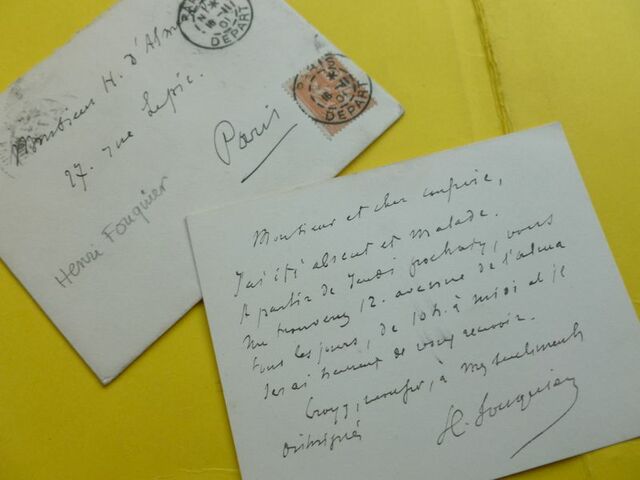 Monsieur H. d'Alm
27. rue Lepic.
Paris
Henri Fouquier
PARIS
18 - 11
01
DEPART
PARIS
18 - 11
01
DEPART
Monsieur et cher confrère,
J'ai été absent et malade.
A partir de Jeudi prochain, vous
me trouverez 12. avenue de l'alma
tous les jours, de 10 h. à midi et je
serai heureux de vous recevoir.
Croyez, confrère, à mes sentiments
distingués
H. Fouquier